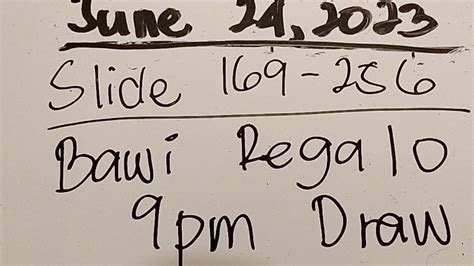 June 24, 2023
Slide 169-256
Bawi Regalo
9pm Draw